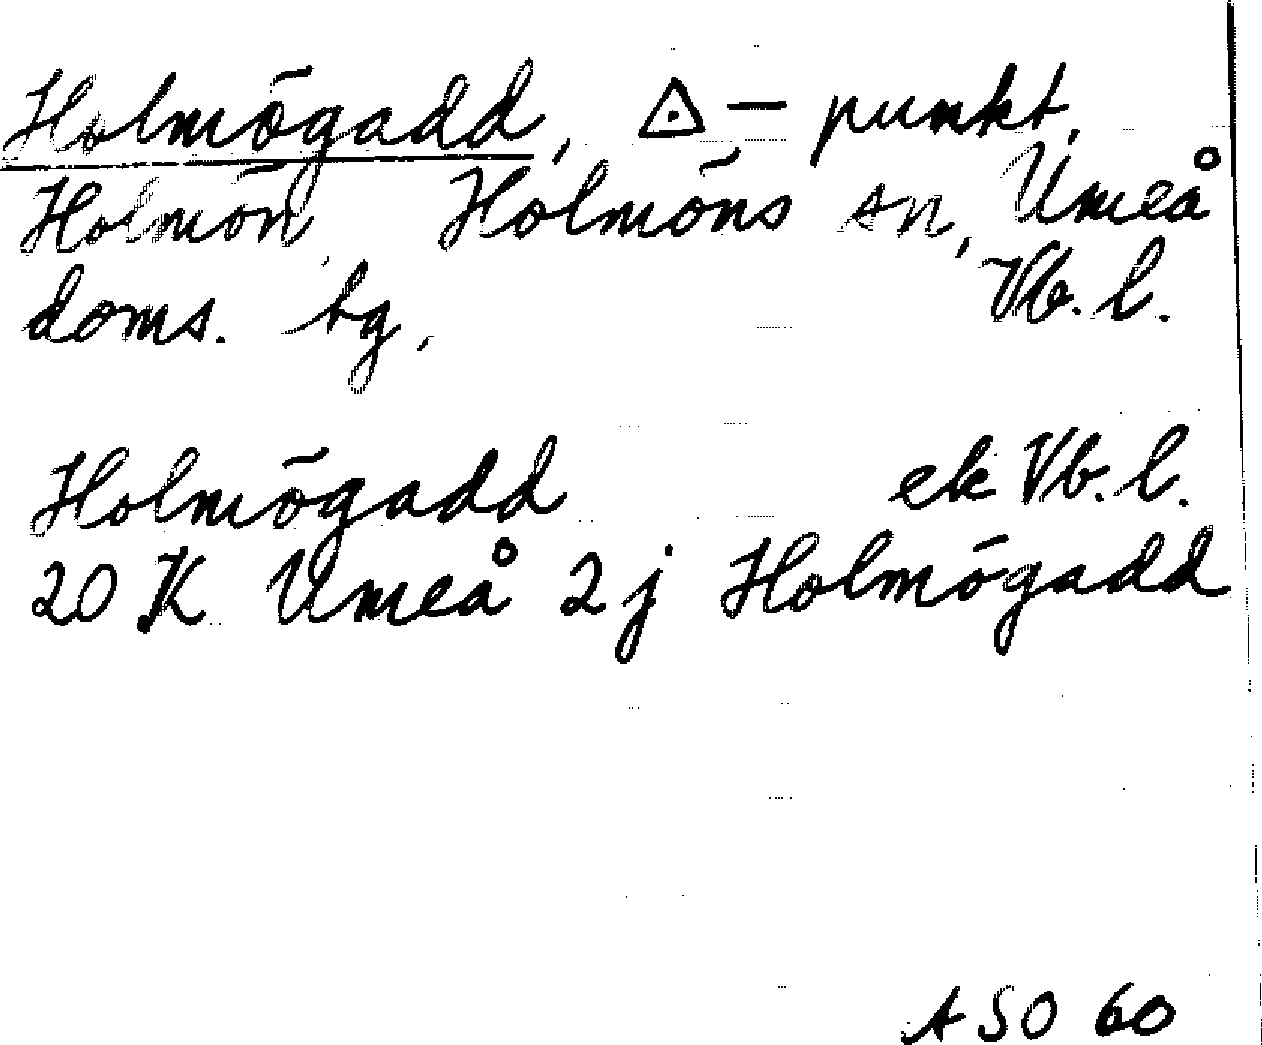 Holmögadd, △ - punkt,
Holmön, Holmöns sn, Umeå
doms. tg, Vb. l.
Holmögadd ek Vb. l.
20 K Umeå 2 j Holmögadd
ASO 60